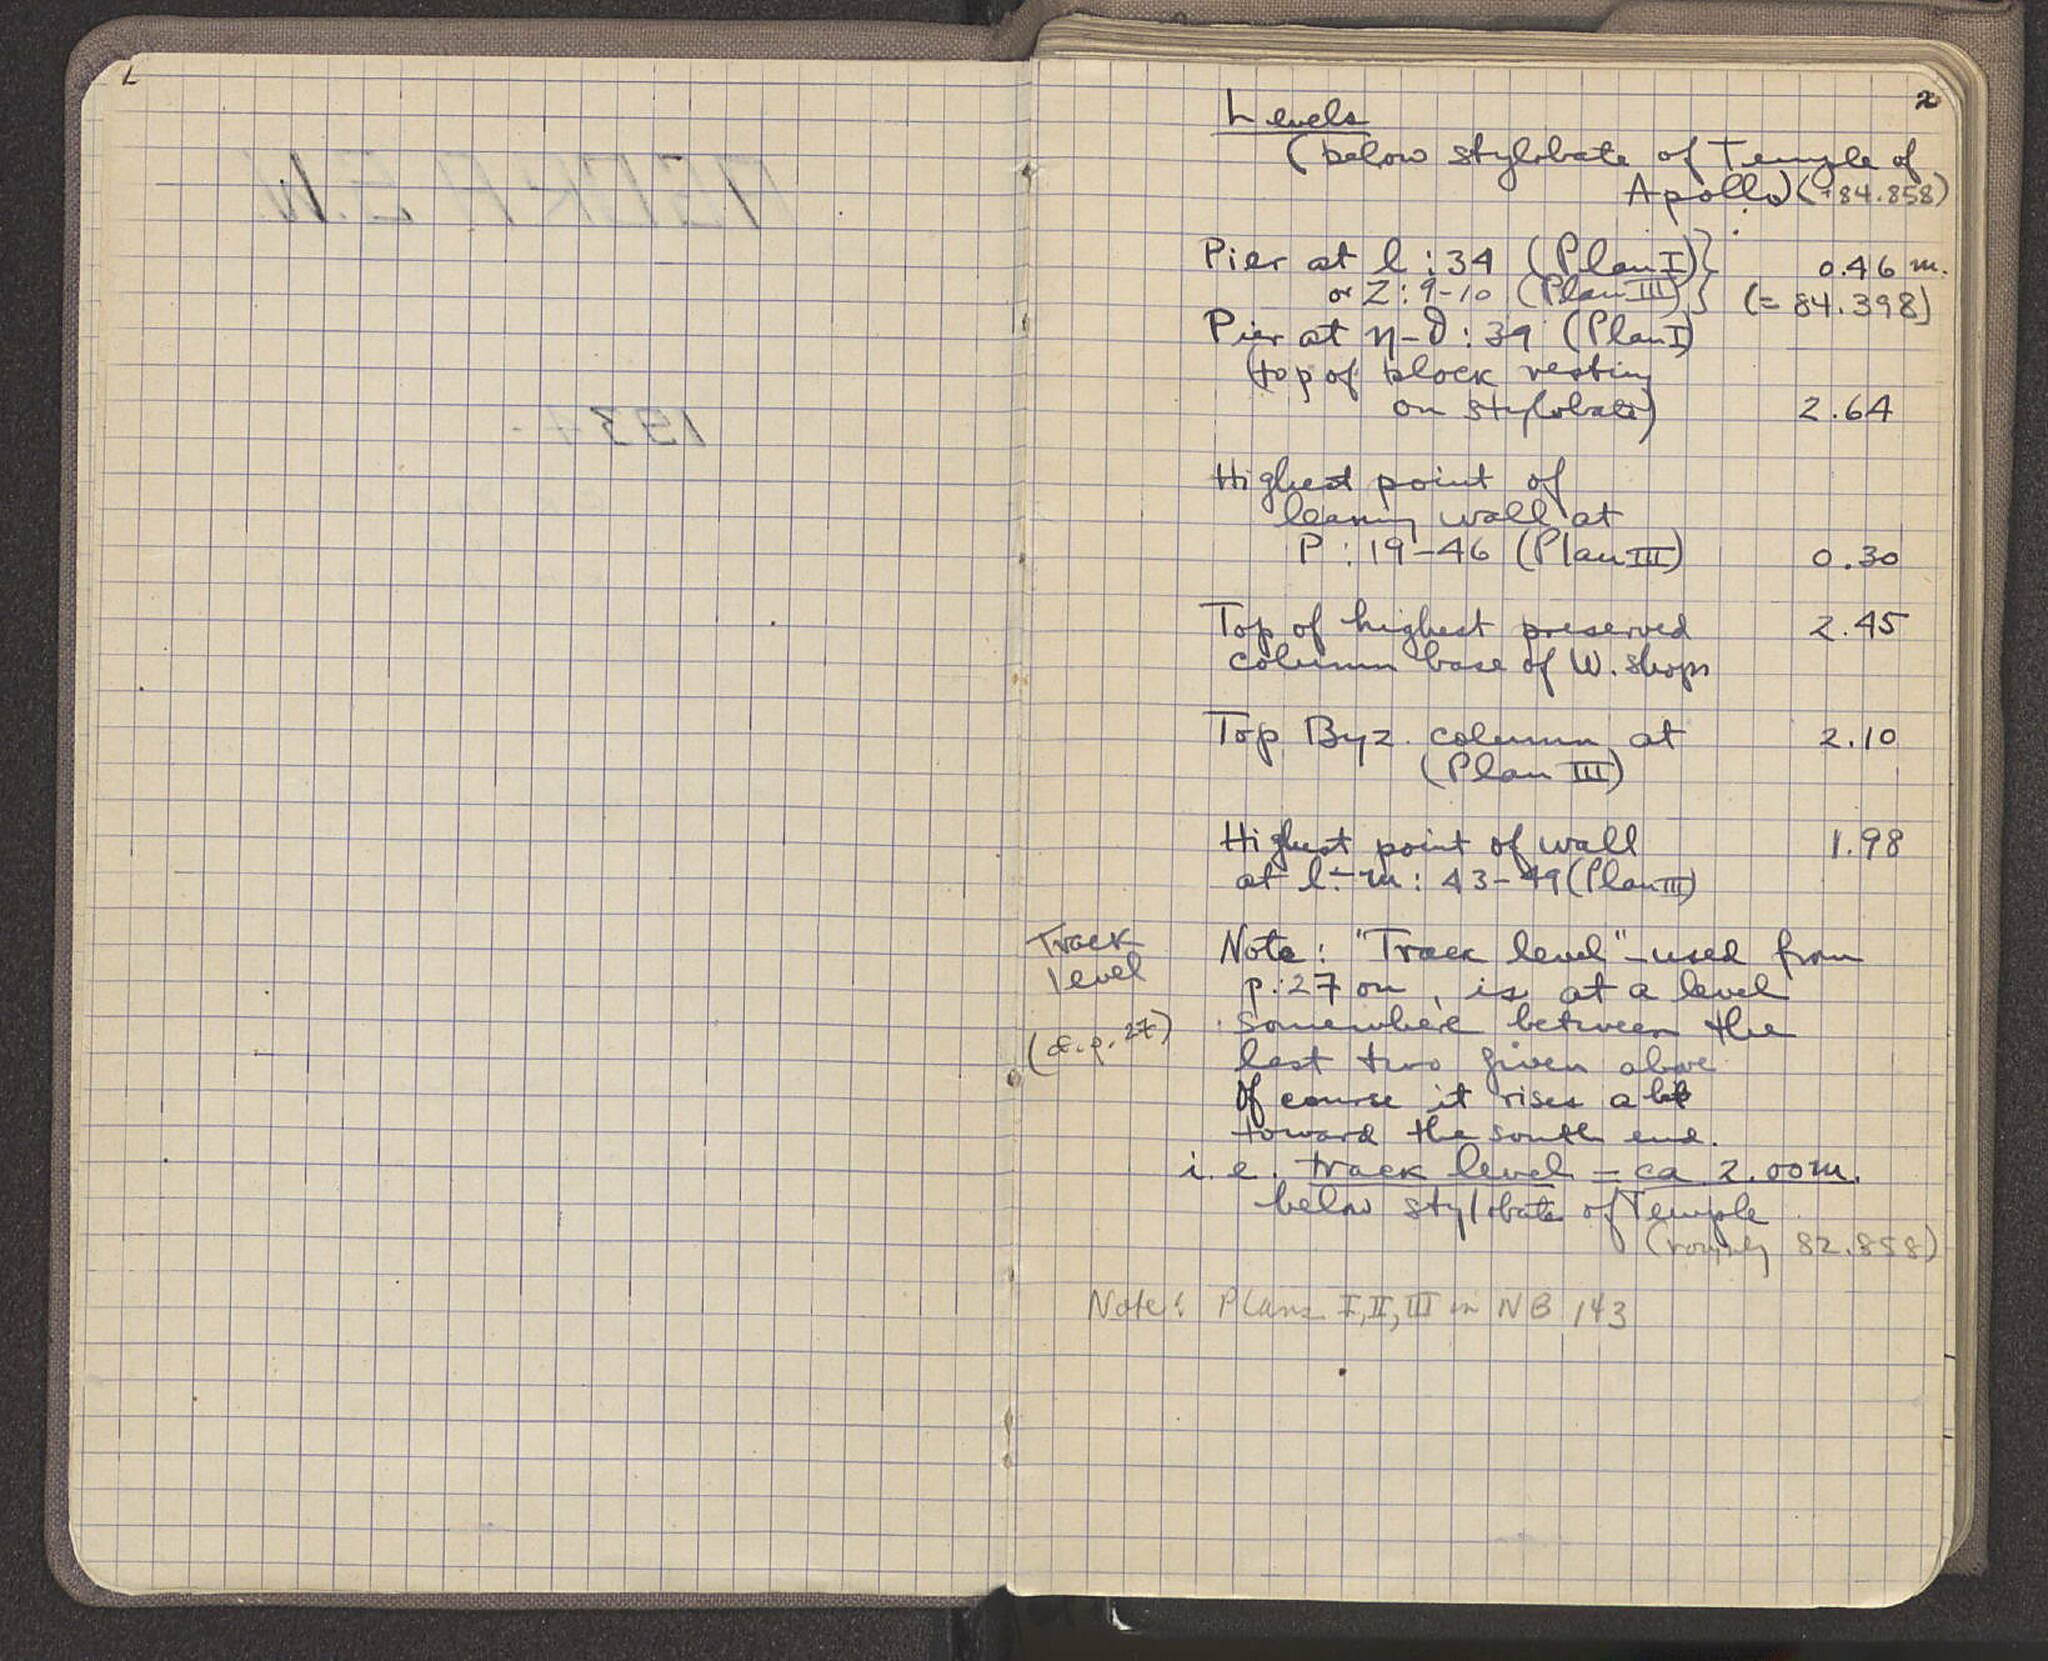 Levels
(below stylobate of Temple of
Apollo) (=84.858)
Pier at l : 34 (Plan I) } 0.46 m.
or Z : 9-10 (Plan III) } (= 84.398)
Pier at η-θ : 39 (Plan I)
(top of block resting
on stylobate) 2.64
Highest point of
leaning wall at
P : 19-46 (Plan III) 0.30
Top of highest preserved 2.45
column base of W. shops
Top Byz. column at 2.10
(Plan III)
Highest point of wall 1.98
at l-m : 43-49 (Plan III)
Track
level
(cf. p. 27)
Note: "Track level" - used from
p. 27 on, is at a level
somewhere between the
last two given above.
Of course it rises a bit
toward the south end.
i.e. track level = ca 2.00 m.
below stylobate of Temple
(roughly 82.858)
Note: Plans I, II, III in NB 143